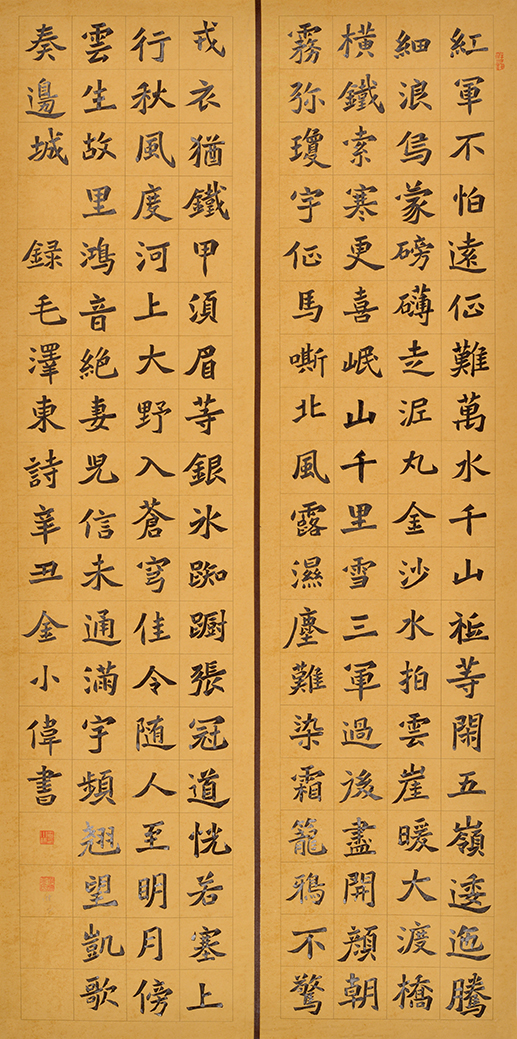 紅軍不怕遠征難萬水千山祗等閑五嶺逶迤騰
細浪烏蒙磅礴走泥丸金沙水拍雲崖暖大渡橋
橫鐵索寒更喜岷山千里雪三軍過後盡開顏朝
霧弥瓊宇征馬嘶北風露濕塵難染霜籠鴉不驚
戎衣猶鐵甲須眉等銀冰踟躕張冠道恍若塞上
行秋風度河上大野入蒼穹佳令隨人至明月傍
雲生故里鴻音絕妻兒信未通滿宇頻翹望凱歌
奏邊城 録毛澤東詩辛丑金小偉書